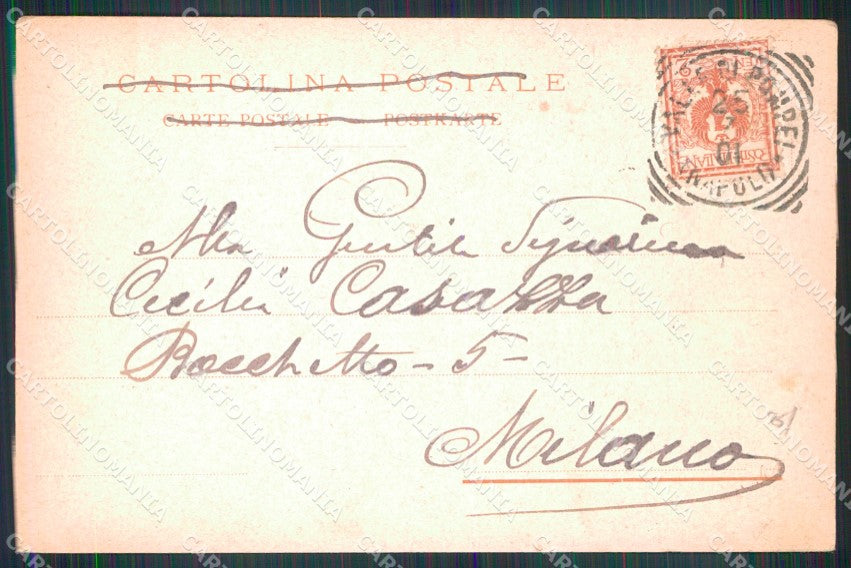 CARTOLINA POSTALE
CARTE POSTALE POSTKARTE
VALLE DI POMPEI
25
7
01
(NAPOLI)
Alla Gentile Signorina
Cecilia Casazza
Bocchetto - 5 -
Milano
CARTOLINOMANIA